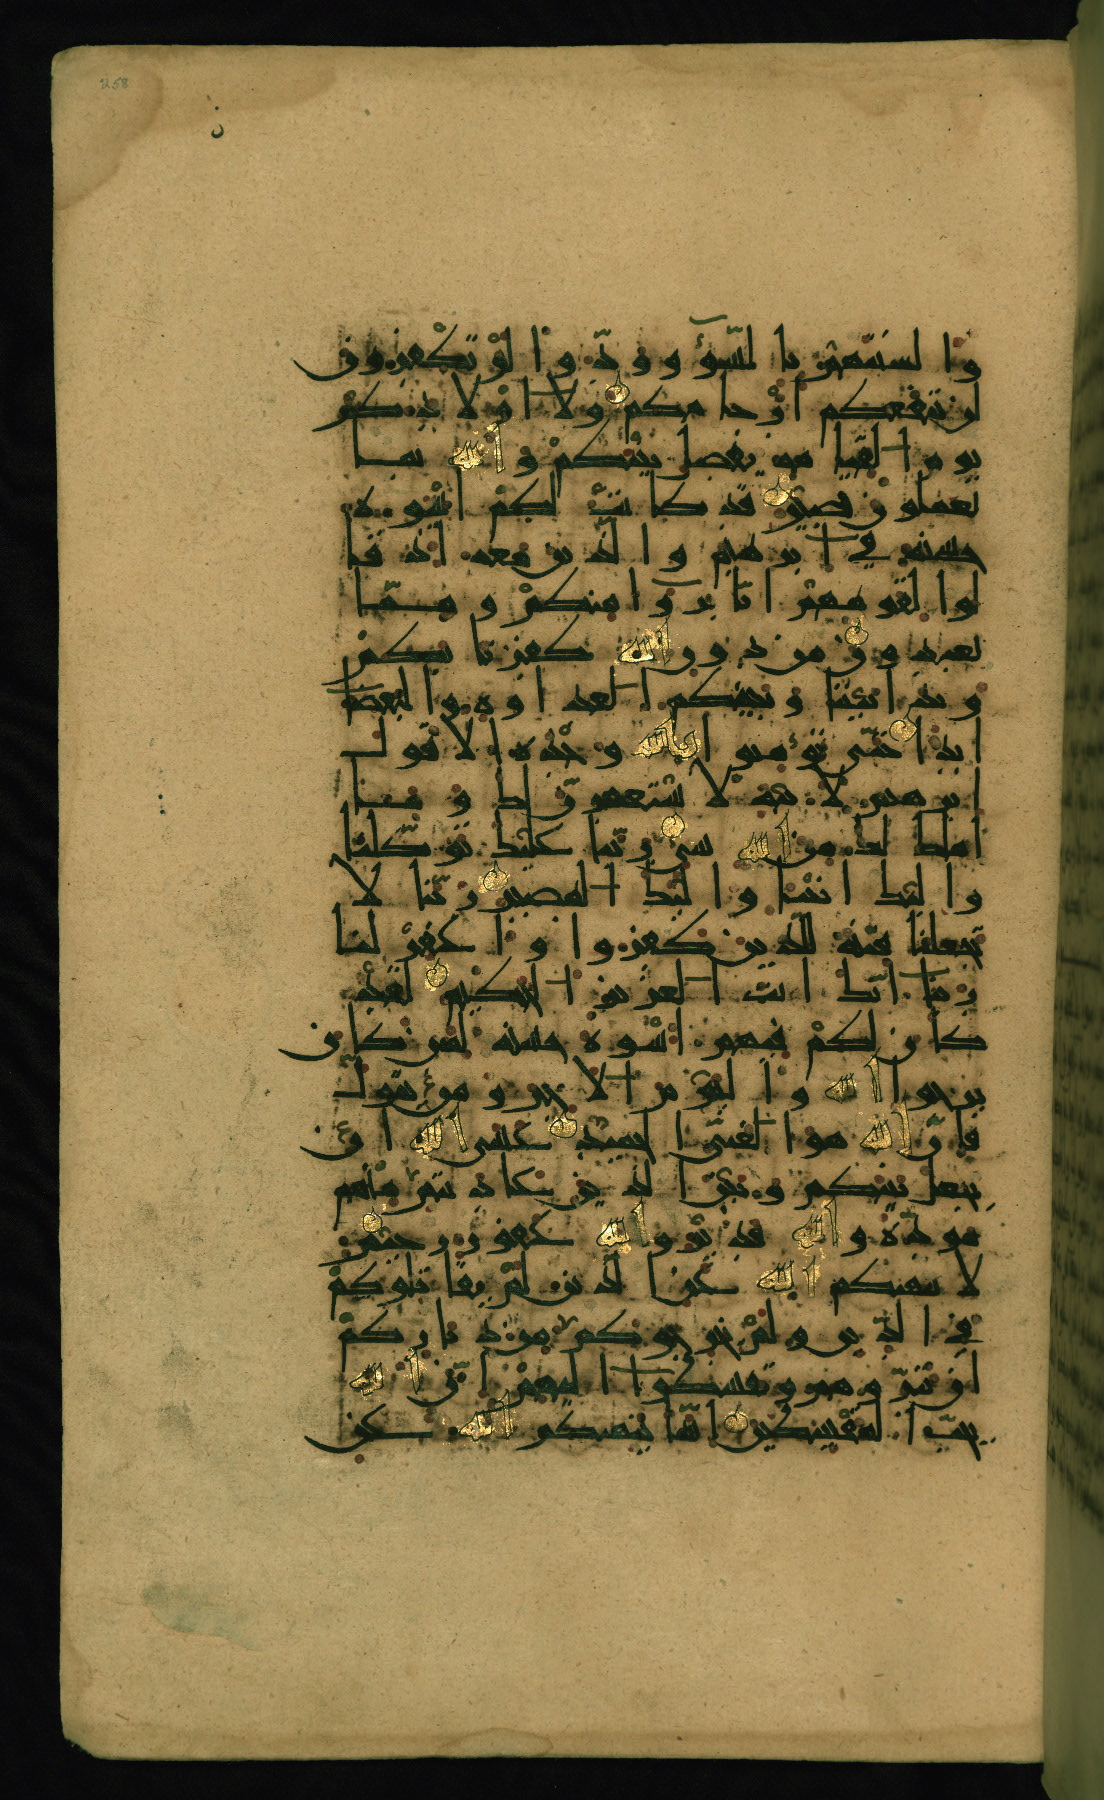 258
وا لسنتهم با لسوء وودوا لو تكفرون
لن تنفعكم ارحا مكم ولا اولا دكم
يوم القيا مه يفصل بينكم و الله بما
تعملون بصير قد كا نت لكم اسوه
حسنه في ا بر هيم و ا لذ ين معه اذ قا
لوا لقو مهم ا نا بر وا منكم و مما
تعبد ون من د ون الله كفر نا بكم
و بد ا بيننا و بينكم ا لعد ا وه وا لبغضا
ابد ا حتى تؤ منو ا بالله و حده ا لا قول
ا بر هيم لا بيه لا ستغفر ن لك و ما
املك لك من الله من شي ر بنا عليك تو كلنا
وا ليك ا نبنا و ا ليك ا لمصير ر بنا لا
تجعلنا فتنه للذ ين كفر وا و ا غفر لنا
ر بنا ا نك ا نت ا لعز يز ا لحكيم لقد
كا ن لكم فيهم ا سوه حسنه لمن كا ن
ير جوا الله و ا ليو م ا لا خر و من يتول
فا ن الله هو ا لغني ا لحميد عسى الله ا ن
يجعل بينكم و بين ا لذ ين عا د يتم منهم
مو ده و الله قد ير و الله غفو ر ر حيم
لا ينهيكم الله عن ا لذ ين لم يقا تلوكم
في ا لد ين و لم يخر جو كم من د يا ركم
ا ن تبر و هم و تقسطو ا ا ليهم ا ن الله
يحب ا لمقسطين ا نما ينهيكم الله عن